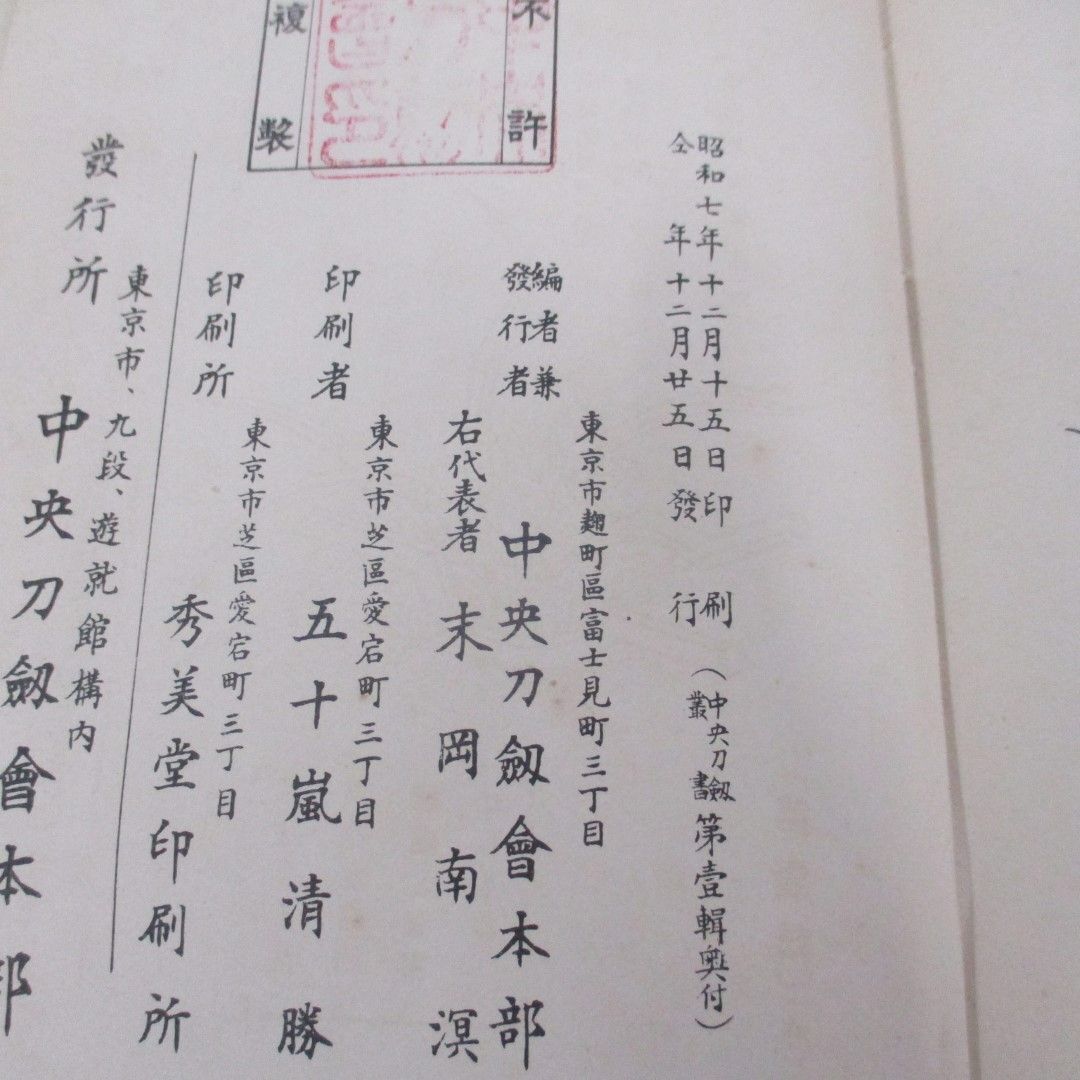 不許
複製
昭和七年十二月十五日印刷
仝年十二月廿五日發行
(中央刀劔叢書第壹輯奥付)
東京市麹町區富士見町三丁目
編者兼發行者
中央刀劔會本部
右代表者 末岡南溟
東京市芝區愛宕町三丁目
印刷者 五十嵐清勝
東京市芝區愛宕町三丁目
印刷所 秀美堂印刷所
東京市、九段、遊就館構内
發行所 中央刀劔會本部